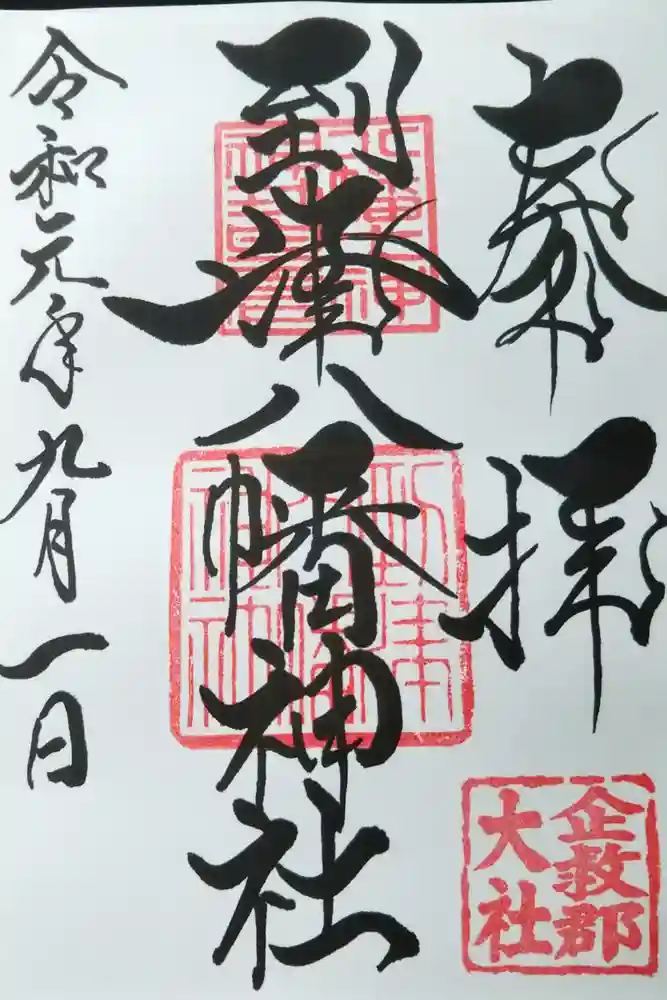 奉拝
企救郡
大社
到津八幡神社
令和元年九月一日